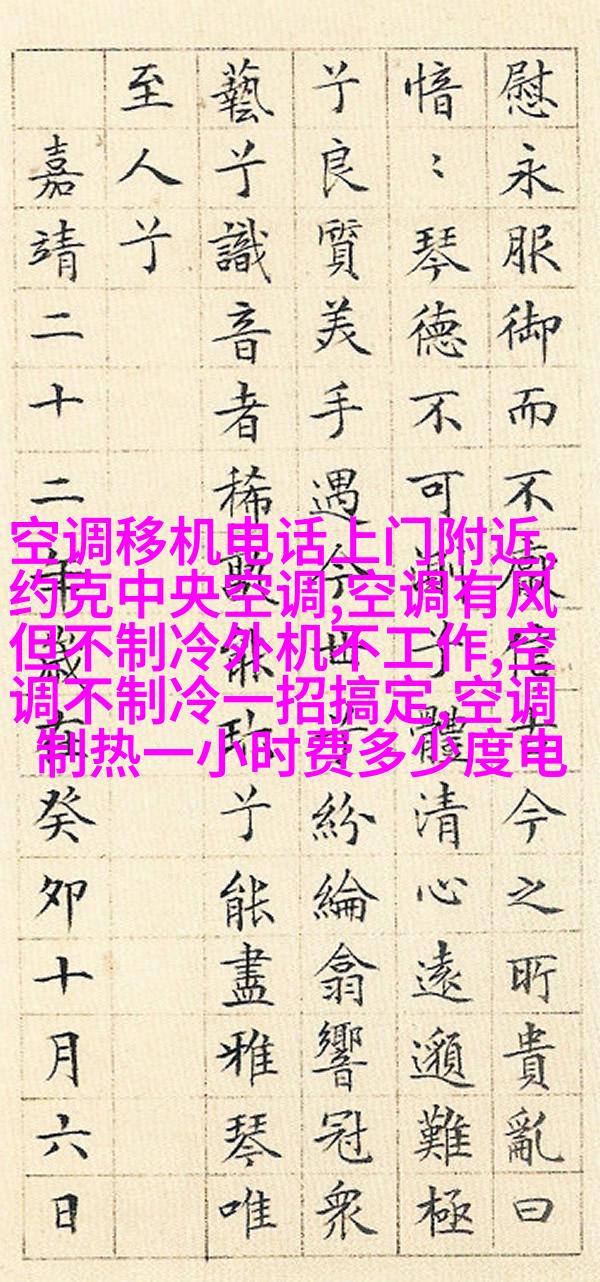 慰永服御而不厭信古今之所貴亂曰
愔〻琴德不可測兮體清心遠邈難極
兮良質美手遇今世兮紛綸翕響冠衆
藝兮識音者稀孰能珍兮能盡雅琴唯
至人兮
嘉靖二十二年歲在癸卯十月六日
空调移机电话上门附近,
约克中央空调,空调有风
但不制冷外机不工作,空
调不制冷一招搞定,空调
制热一小时费多少度电